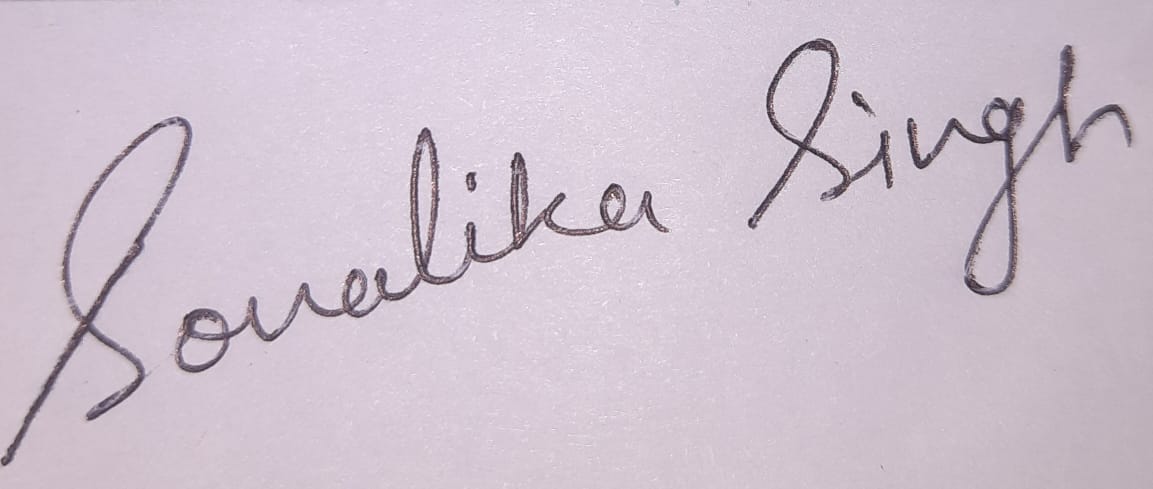 Sonalika Singh